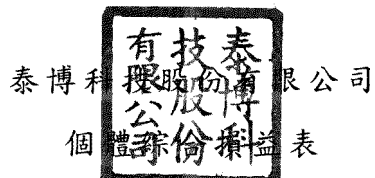 泰博科技股份有限公司
個體綜合損益表
泰博科
技股份
有限公司